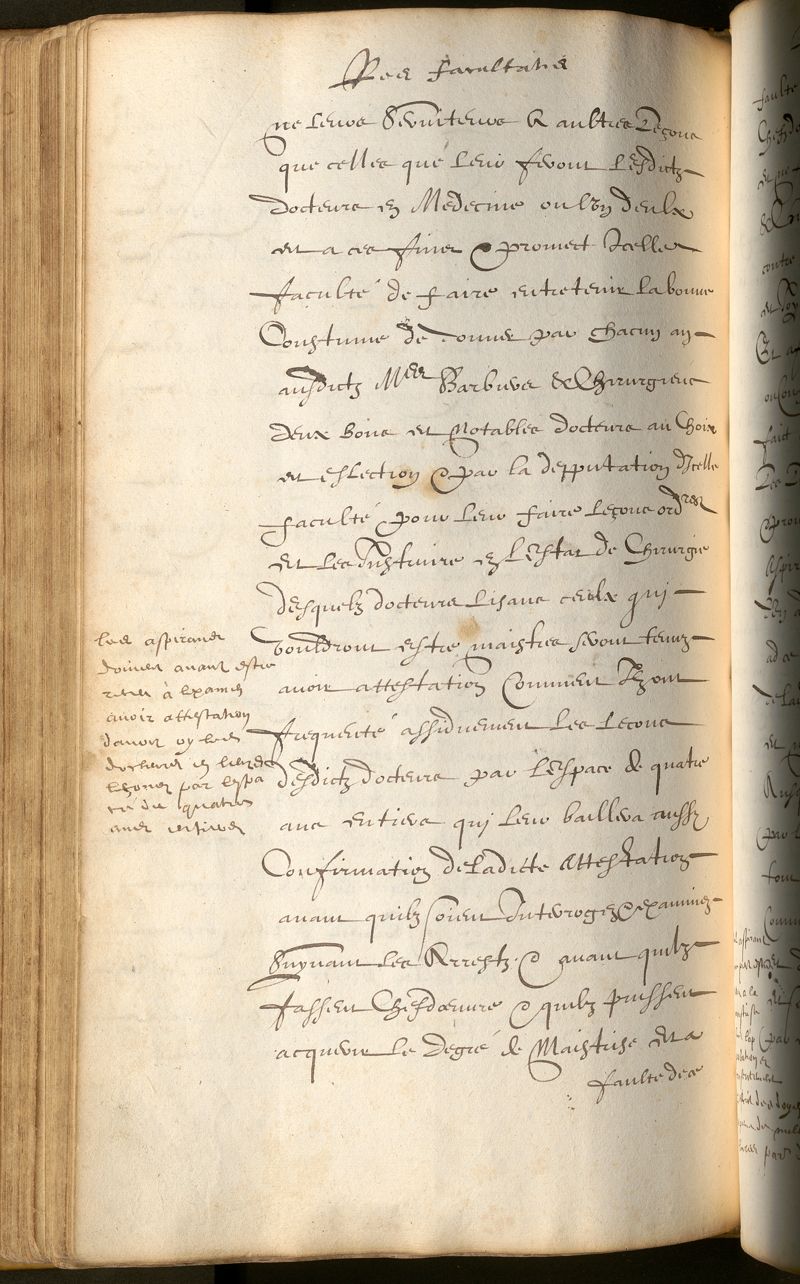 Res facultatis
ne leurs serviteurs & aultres Leçons
que celles que leur feront lesdictz
docteurs en Medecine ou l'un deulx
et a ces fins & promect Icelle
faculté de faire entretenir la bonne
Coustume de donner par chacun an
ausdictz Mes Barbiers & Chirurgiens
deux bons et Notables docteurs au Choix
et eslection & par la depputation d'Icelle
faculté pour leur faire Leçons ordres
et les Instruire en l'estat de Chirurgie
desquelz docteurs lisans ceulx qui
vouldront estre maistres seront tenuz
avoir attestation Comment Ilz ont
frequenté assiduement les leçons
desdictz docteurs par l'espace de quatre
ans entiers qui leur baillera aussy
Confirmation de ladicte Attestation
avant quilz soient Interrogez & examinez
Suyvant les Arrestz & avant quilz
fassent Chefdoeuvre & quilz puissent
acquerir le degré de Maistrise et a
faulte des
les aspirans
doivent avant estre
receu à lexamen
avoir attestation
davoir oy les
docteurs en leurs
leçones par lespa
ce de quatre
annes entieres